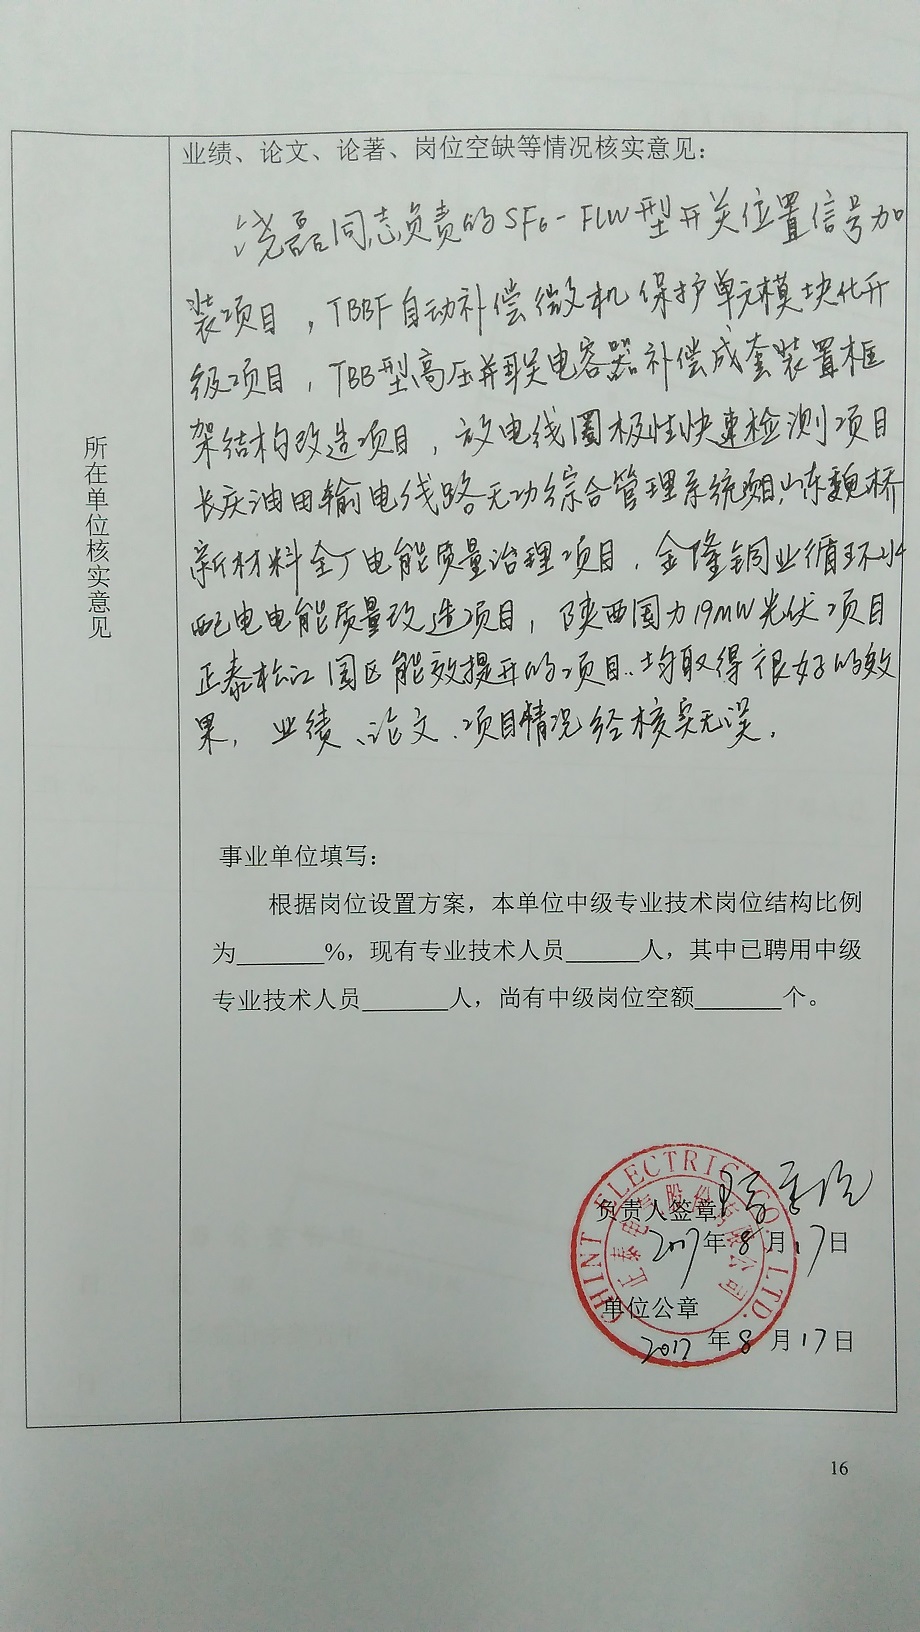 业绩、论文、论著、岗位空缺等情况核实意见：
磊同志负责的SF6-FLW型开关位置信号加
装项目，TBBF自动补偿微机保护单元模块化升
级项目，TBB型高压并联电容器补偿成套装置框
架结构改造项目，放电线圈极性快速检测项目
长庆油田输电线路无功综合管理系统项目，山东魏桥
新材料全厂电能质量治理项目，金隆铜业循环水
配电电能质量改造项目，陕西国力19MW光伏项目
正泰松江园区能效提升的项目..均取得很好的效
果，业绩、论文、项目情况经核实无误．
所在单位核实意见
事业单位填写：
根据岗位设置方案，本单位中级专业技术岗位结构比例
为______%，现有专业技术人员______人，其中已聘用中级
专业技术人员______人，尚有中级岗位空额______个。
CHINT ELECTRIC CO.,LTD.
正泰电气股份有限公司
负责人签章
2017年8月17日
单位公章
2017年8月17日
16